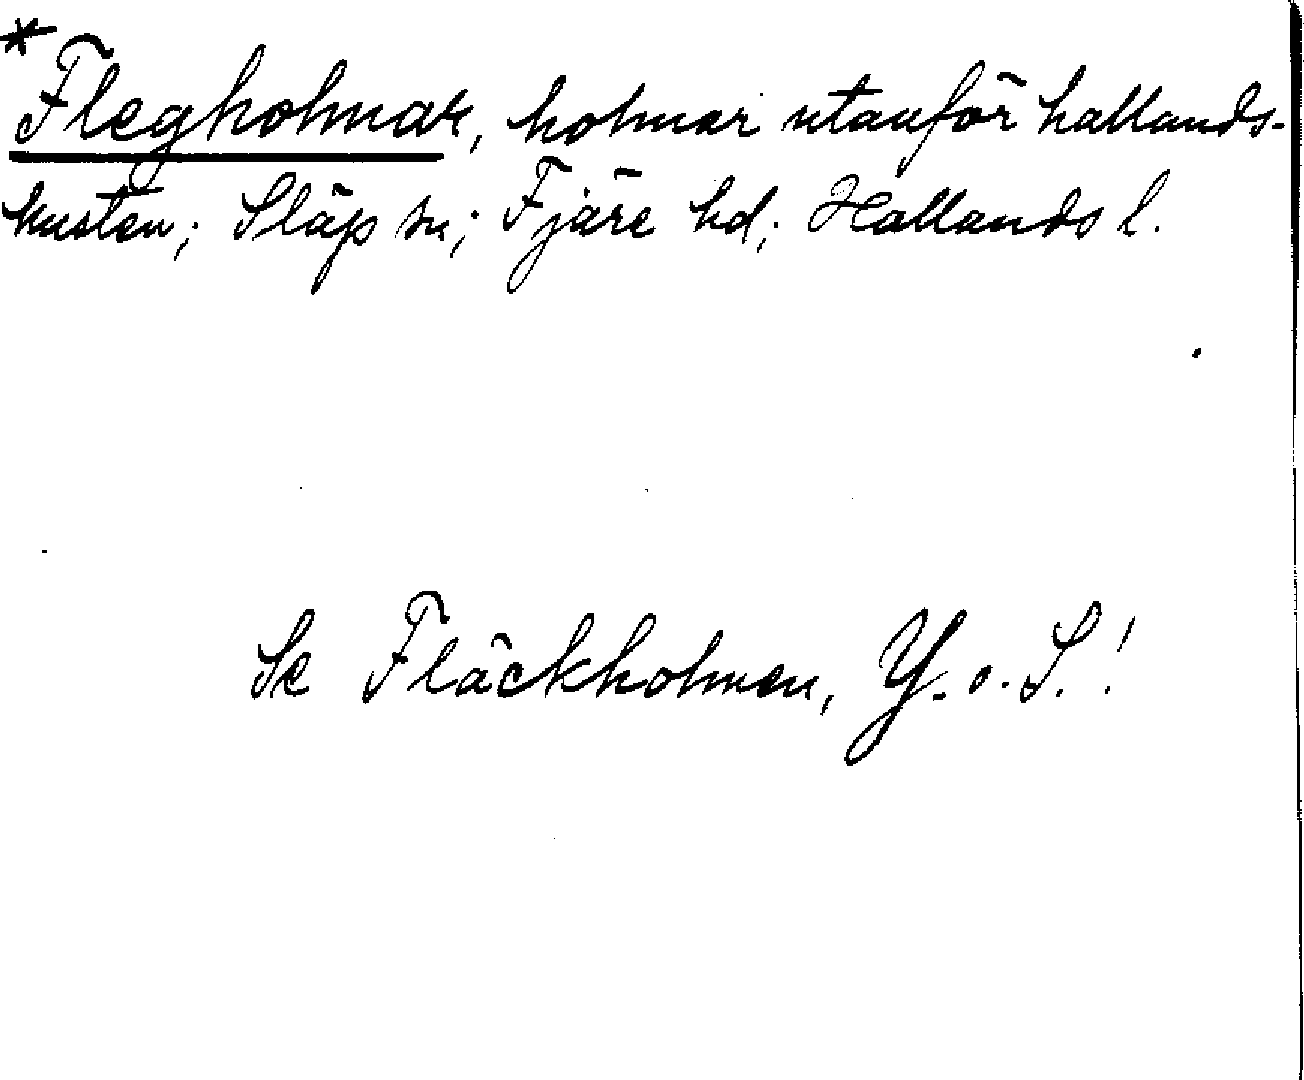 *Flegholmar, holmar utanför hallands-
kusten; Släp sn; Fjäre hd; Hallands l.
Se Fläckholmen, Y. o. S.!